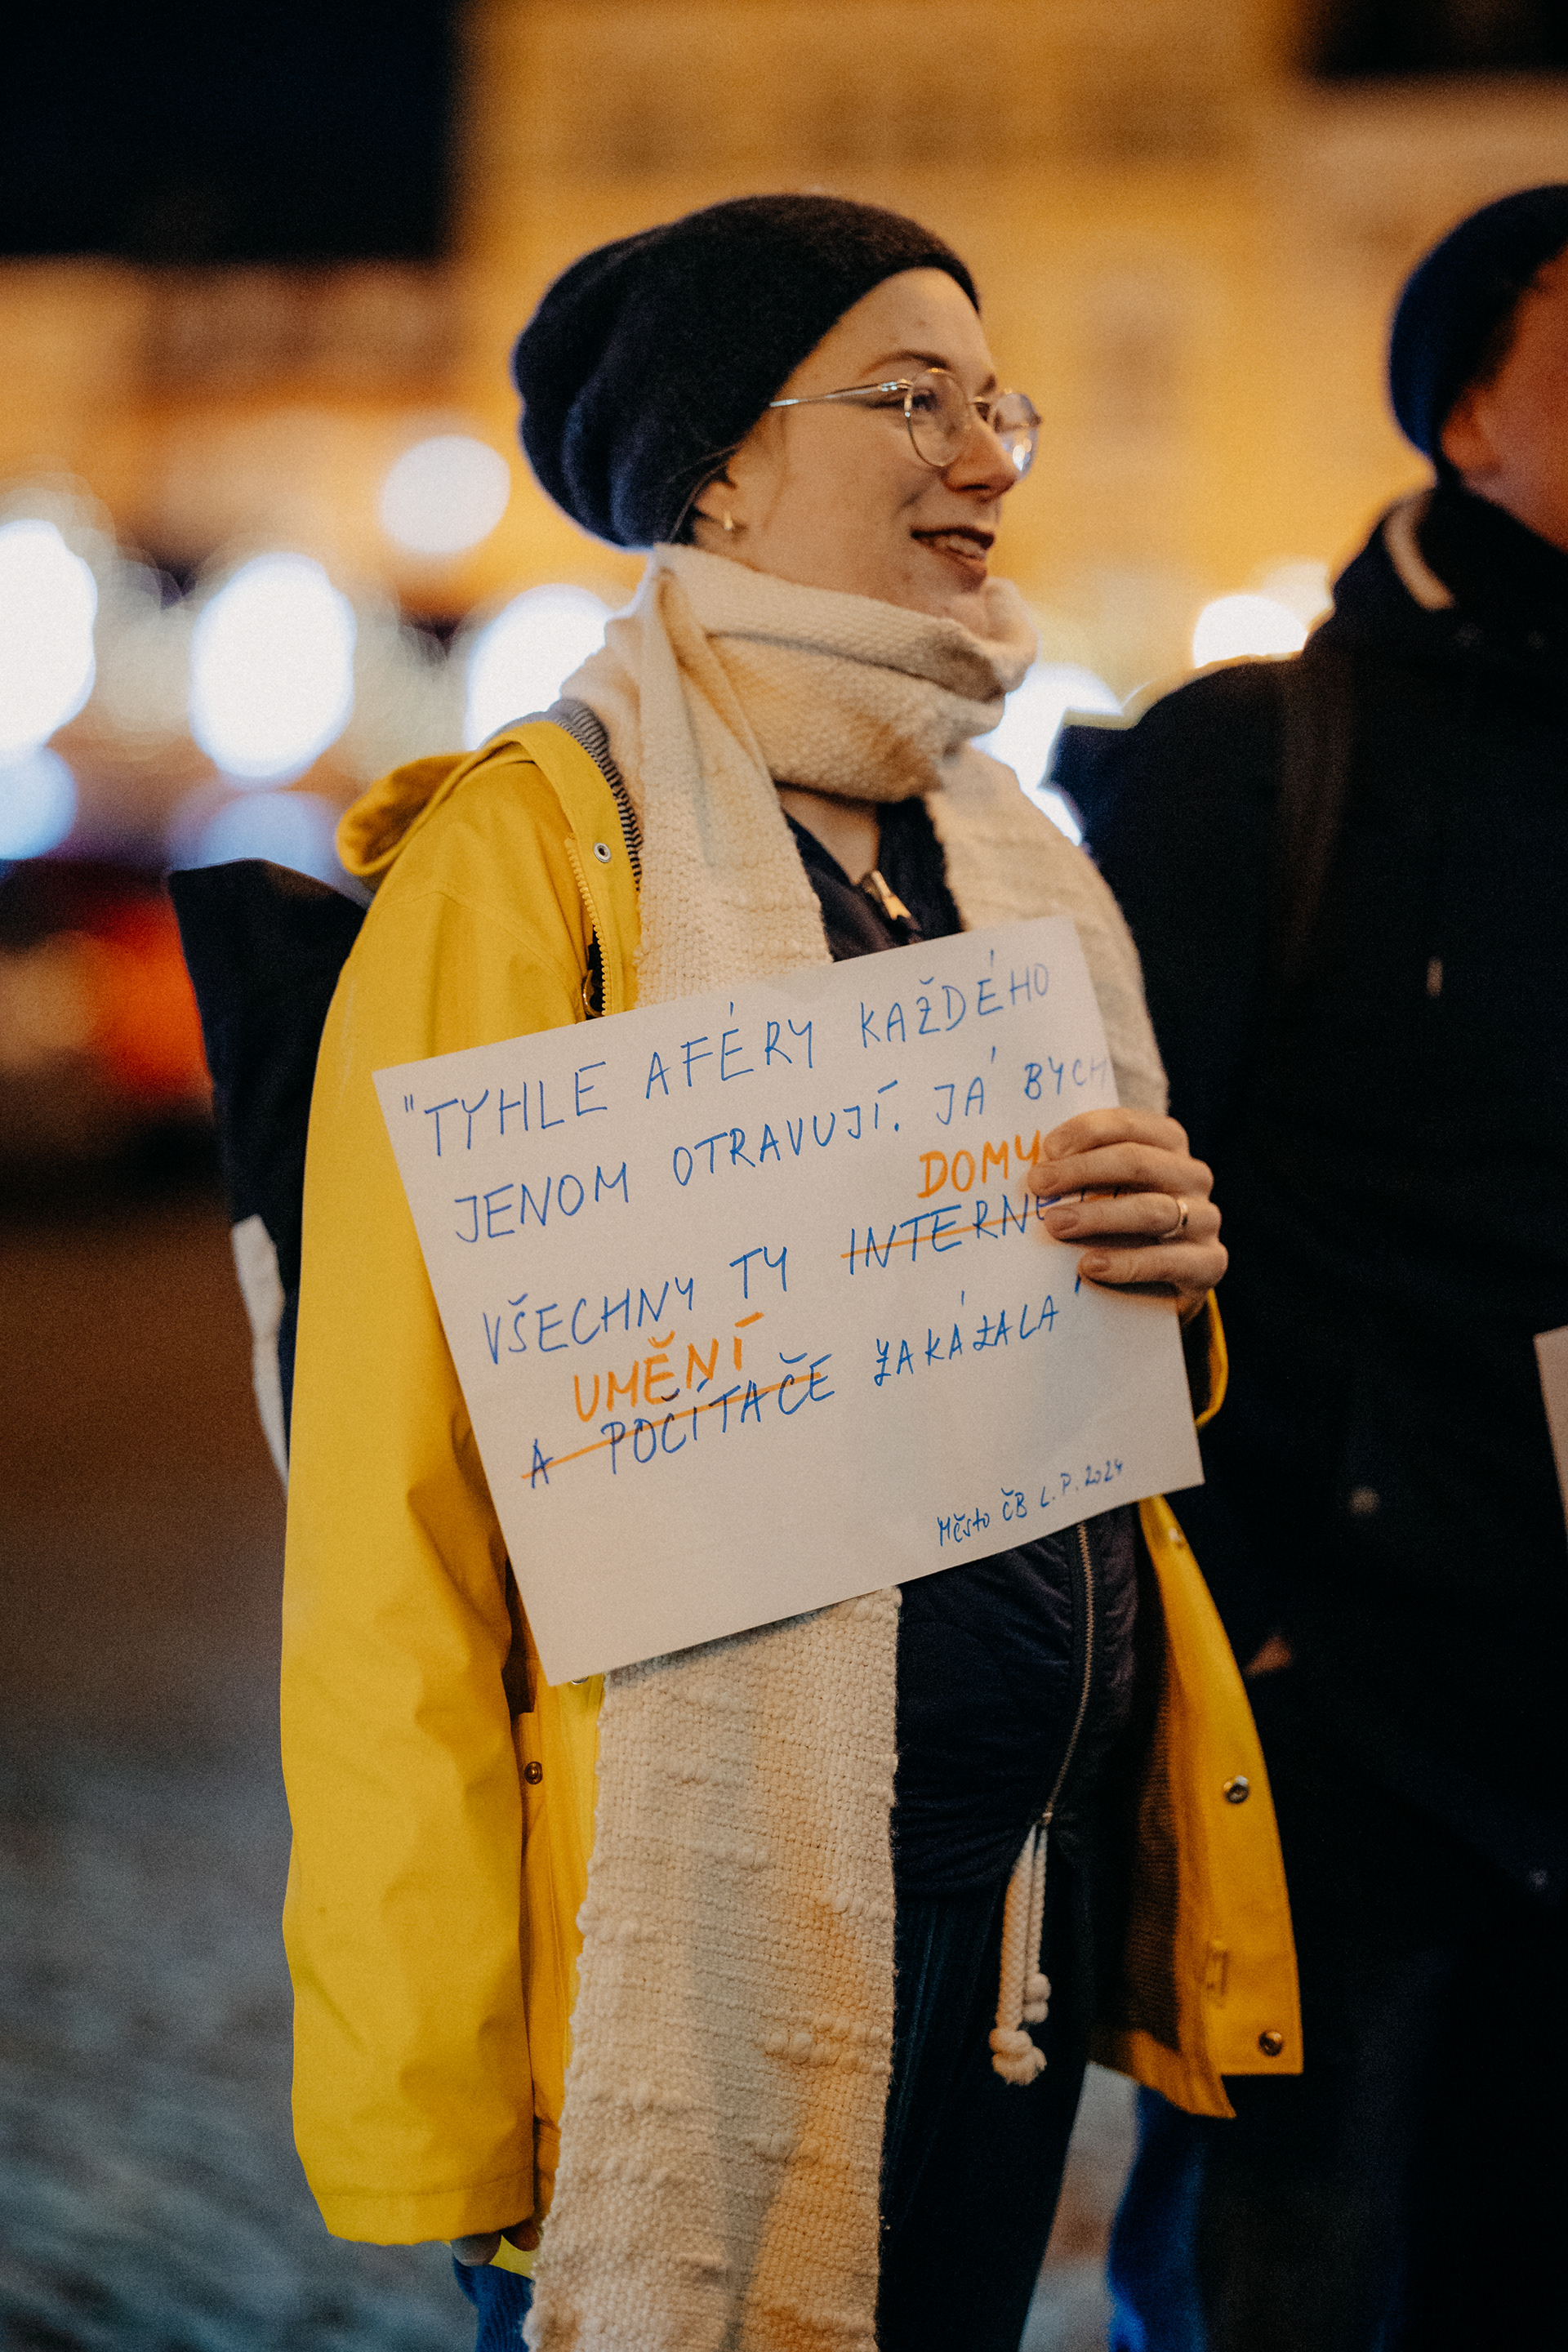 "TYHLE AFÉRY KAŽDÉHO
JENOM OTRAVUJÍ. JÁ BYCH
DOMY
VŠECHNY TY INTERNE
UMĚNÍ
A POČÍTAČE ZAKÁZALA"
Město ČB L.P. 2024